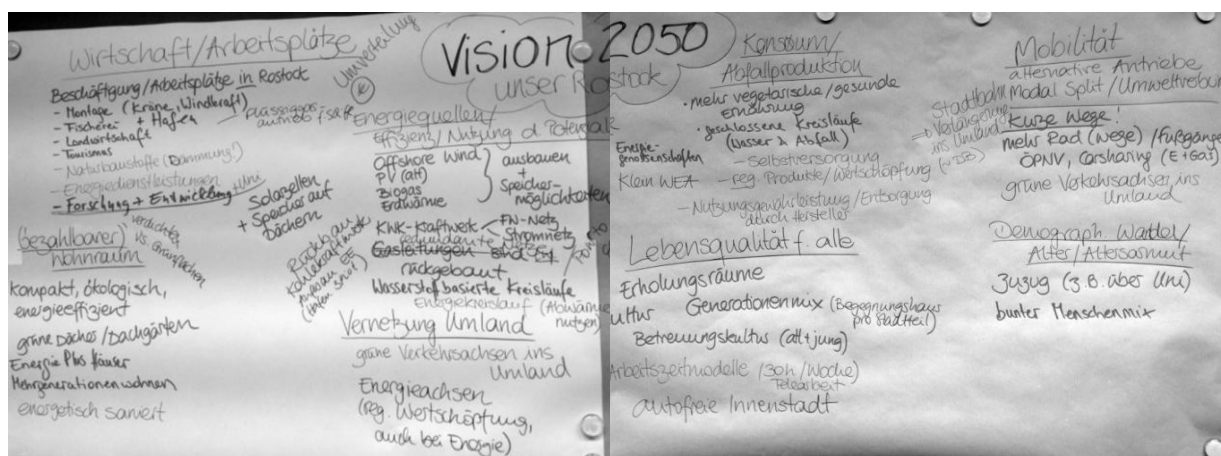 Vision 2050
unser Rostock
Wirtschaft/Arbeitsplätze
Beschäftigung/Arbeitsplätze in Rostock
- Montage (Kräne, Windkraft)
- Fischerei + Hafen
- Landwirtschaft
- Tourismus
- Naturbaustoffe (Dämmung!)
- Energiedienstleistungen
- Forschung + Entwicklung + Uni
Umverteilung
(bezahlbarer)
Wohnraum
verdichtet
vs. Grünflächen
kompakt, ökologisch,
energieeffizient
grüne Dächer/Dachgärten
Energie Plus Häuser
Mehrgenerationenwohnen
energetisch saniert
Solarzellen
+ Speicher auf
Dächern
Rückbau
Kohlekraftwerk
Ausbau EE
Energiequellen/
Effizienz/Nutzung d. Potentiale
Offshore Wind
PV (att)
Biogas
Erdwärme
ausbauen
+
Speicher-
möglichkeiten
KWK-Kraftwerk
FW-Netz
Stromnetz
redundante Netze
Gasleitungen sind
rückgebaut
Wasserstoffbasierte Kreisläufe
Energiekreislauf (Abwärme
nutzen)
Vernetzung Umland
grüne Verkehrsachsen ins
Umland
Energieachsen
(reg. Wertschöpfung,
auch bei Energie)
Konsum/
Abfallproduktion
• mehr vegetarische/gesunde
Ernährung
• geschlossene Kreisläufe
(Wasser & Abfall)
- Selbstversorgung
- reg. Produkte/Wertschöpfung
- Nutzungsgewährleistung/Entsorgung
durch Hersteller
Energie-
genossenschaften
Klein WEA
Lebensqualität f. alle
Erholungsräume
ultur
Generationenmix (Begegnungshaus
pro Stadtteil)
Betreuungskultur (alt+jung)
Arbeitszeitmodelle (30h/Woche)
Telearbeit
autofreie Innenstadt
Mobilität
alternative Antriebe
Modal Split/Umweltverbun
Stadtbahn
Verlängerung
ins Umland
Kurze Wege!
mehr Rad (wege)/Fußgänge
ÖPNV, Carsharing (E+Gas)
grüne Verkehrsachsen ins
Umland
Demograph. Wandel/
Alter/Altersarmut
Zuzug (z.B. über Uni)
bunter Menschenmix